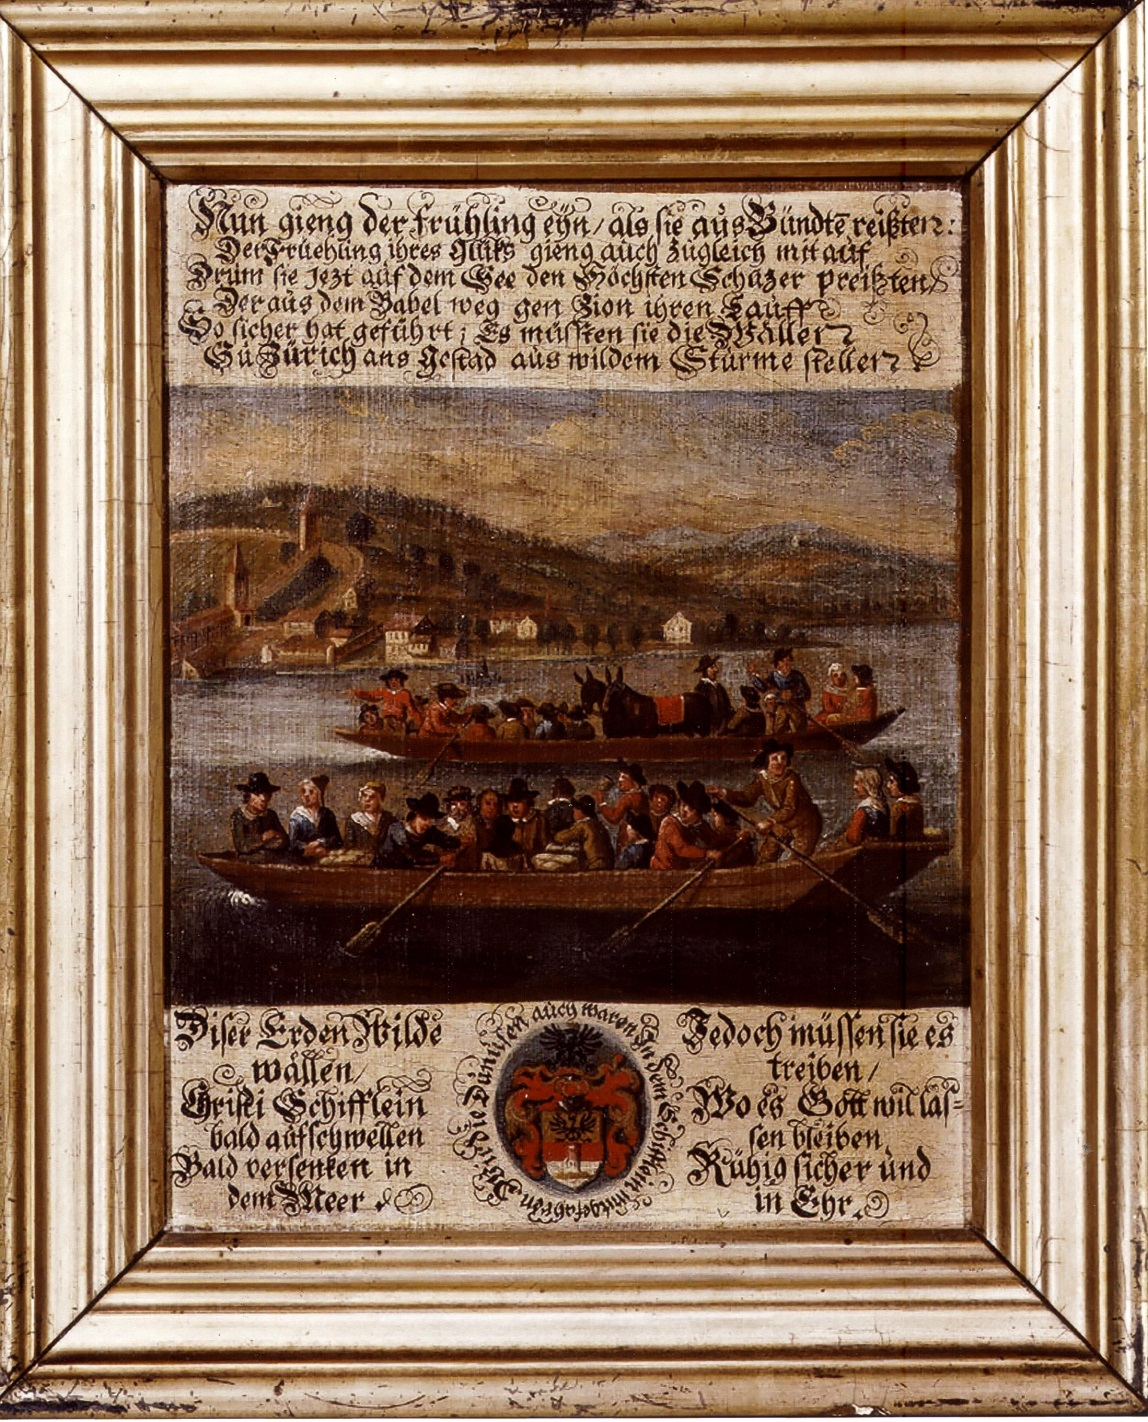 Nun gieng der Frühling eÿn / als sie aus Bündtē reißten:
Der Früehling ihres Glüks gieng auch zugleich mit auf
Drum sie Jezt auf dem See den Höchsten Schazer preißten
Der aus dem Babel weg gen Zion ihren Lauff
So sicher hat geführt; Es müssten sie die Wäller
Gu Zürich ans Gestad aus wildem Sturme steller
Diser Erden Wilde
wällen /
Christi Schifflein
bald aufschwellen
Bald versenken in
dem Meer
auch waren In dem Schifflein mitgefahren
Jedoch müssen sie es
treiben /
Wo es Gott wil las=
sen bleiben
Rühig sicher und
in Ehr.